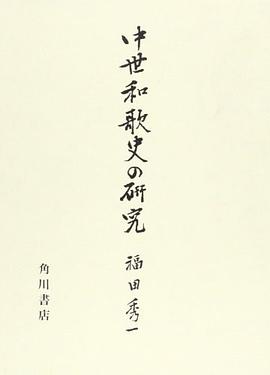 中世和歌史の研究
福田秀一
角川書店